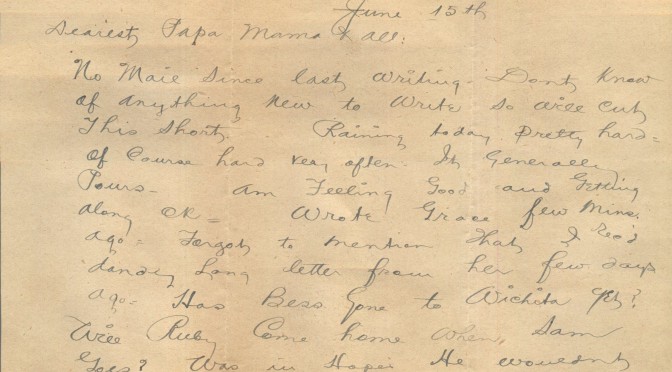 June 15th
Dearest Papa Mama & All:
No Mail Since last writing. Dont Know
of anything New to Write so will cut
This Short. Raining today pretty hard=
of Course hard very often. It Generally
Pours- am Feeling Good and Getting
along OK= Wrote Grace few Mins.
ago= Forgot to mention That I Rec'd
dandy Long letter from her few days
ago= Has Bess gone to Wichita yet?
Will Ruby Come home when, Sam
Goes? Was in Hopes He wouldnt